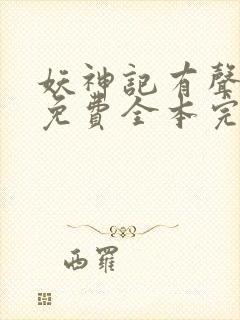 妖神記有聲
免費全本完
西羅